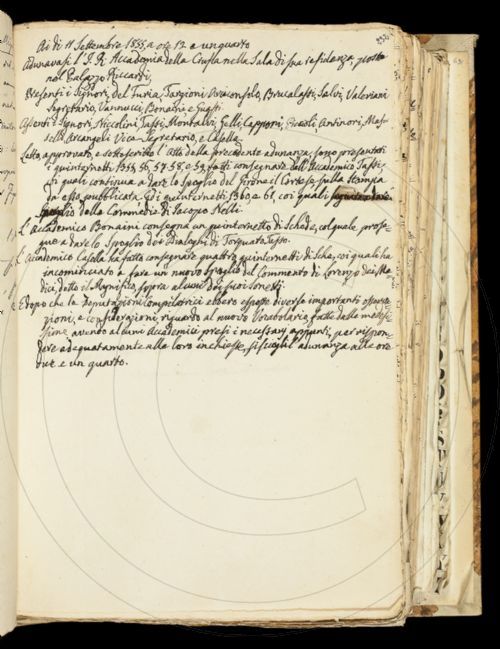 Ai dì 11 Settembre 1835, a ore 12 e un quarto
Adunavasi l'I. R. Accademia della Crusca nella Sala di sua residenza, posta
nel Palazzo Riccardi,
Presenti i Signori, del Furia, Targioni Viceconsolo, Brucalassi, Salvi, Valeriani
Segretario, Vannucci, Bonaini e
Assenti i Signori, Niccolini, Tassi, Montalvi, Felli, Capponi, Antinori,
Arcangeli Vice-Segretario, e Casella.
Letto, approvato, e sottoscritto l'Atto della precedente adunanza, sono presentati
i quinternetti 1355, 56, 57, 58, e 59, fatti consegnare dall'Accademico Tassi,
il quale continua a dare lo spoglio del Girone il Cortese sulla stampa
da esso pubblicata. Ed i quinternetti 1360, e 61, coi quali
Spoglio della Commedie di Jacopo Nelli.
L'Accademico Bonaini consegna un quinternetto di Schede, col quale prose-
gue a dare lo Spoglio dei Dialoghi di Torquato Tasso.
L'Accademico Casella ha fatto consegnare quattro quinternetti di Schede, coi quali ha
incominciato a fare un nuovo Spoglio del Commento di Lorenzo dei Me-
dici, detto il Magnifico, sopra alcuni de' suoi Sonetti.
E dopo che la Deputazione Compilatrice ebbero esposte diverse importanti osserva-
zioni, e considerazioni riguardo al nuovo Vocabolario, fatte dalle medesi-
me avendo alcuni Accademici presi i necessarj appunti, per rispon-
dere adequatamente alle loro inchieste, si sciolse l'adunanza alle ore
due e un quarto.